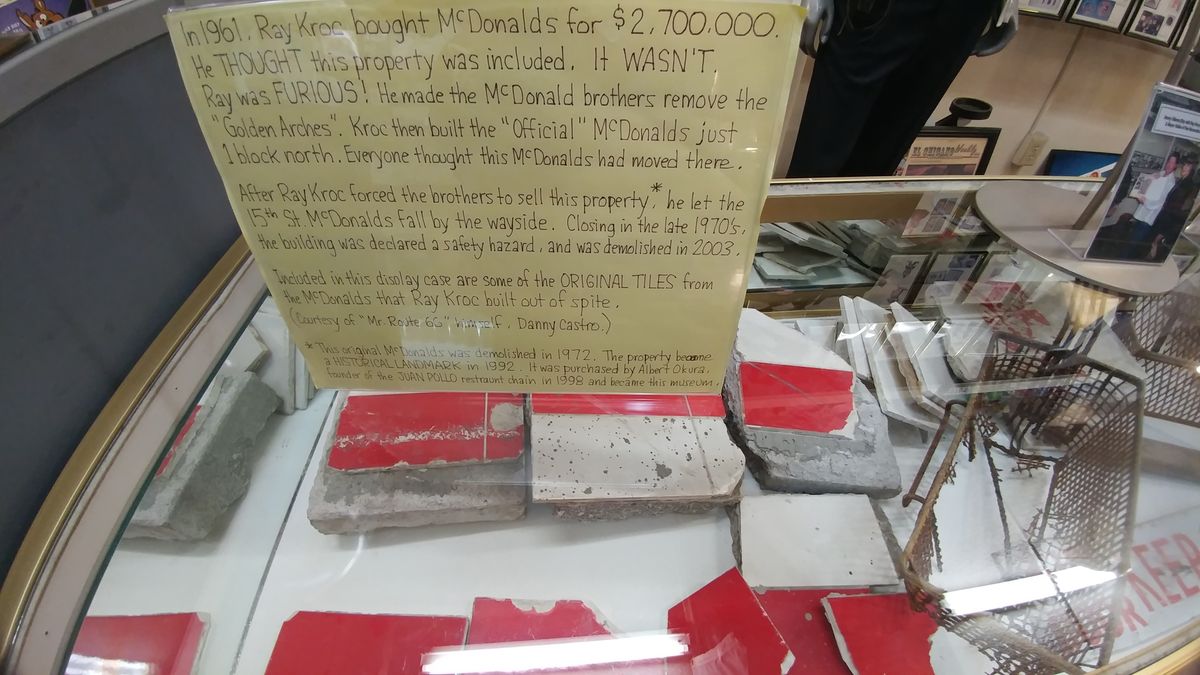 In 1961, Ray Kroc bought McDonalds for $2,700,000.
He THOUGHT this property was included. It WASN'T.
Ray was FURIOUS! He made the McDonald brothers remove the
"Golden Arches". Kroc then built the "Official" McDonalds just
1 block north. Everyone thought this McDonalds had moved there.
After Ray Kroc forced the brothers to sell this property,* he let the
15th St. McDonalds fall by the wayside. Closing in the late 1970's,
the building was declared a safety hazard, and was demolished in 2003.
Included in this display case are some of the ORIGINAL TILES from
the McDonalds that Ray Kroc built out of spite.
(Courtesy of "Mr. Route 66", himself, Danny Castro.)
* This original McDonalds was demolished in 1972. The property became
a HISTORICAL LANDMARK in 1992. It was purchased by Albert Okura,
founder of the JUAN POLLO restraunt chain in 1998 and became this museum.
EL CHICANO Weekly
KEEP